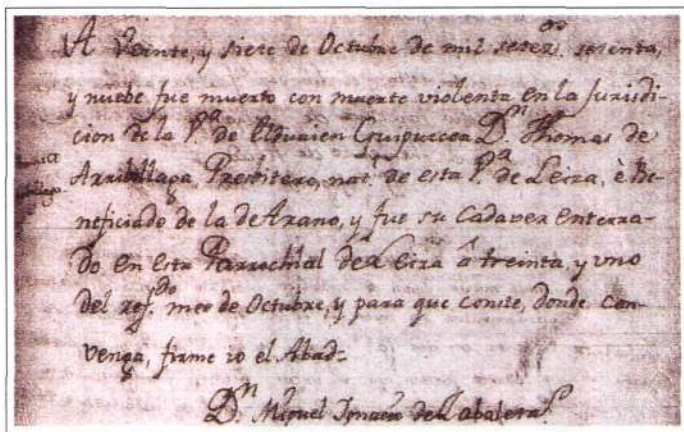 A Veinte, y siete de Octubre de mil setez.os setenta,
y nuebe fue muerto con muerte violenta en la Jurisdi-
cion de la V.a de Elduaien Guipuzcoa D.n Thomas de
Arribillaga, Presbitero, nat. de esta V.a de Leiza, è Be-
neficiado de la de Arano, y fue su Cadaver enterra-
do en esta Parrochial de Leiza â treinta, y uno
del ref.do mes de Octubre, y para que conste, donde con-
venga, firme io el Abad=
D.n Miguel Ignacio de Zabaleta